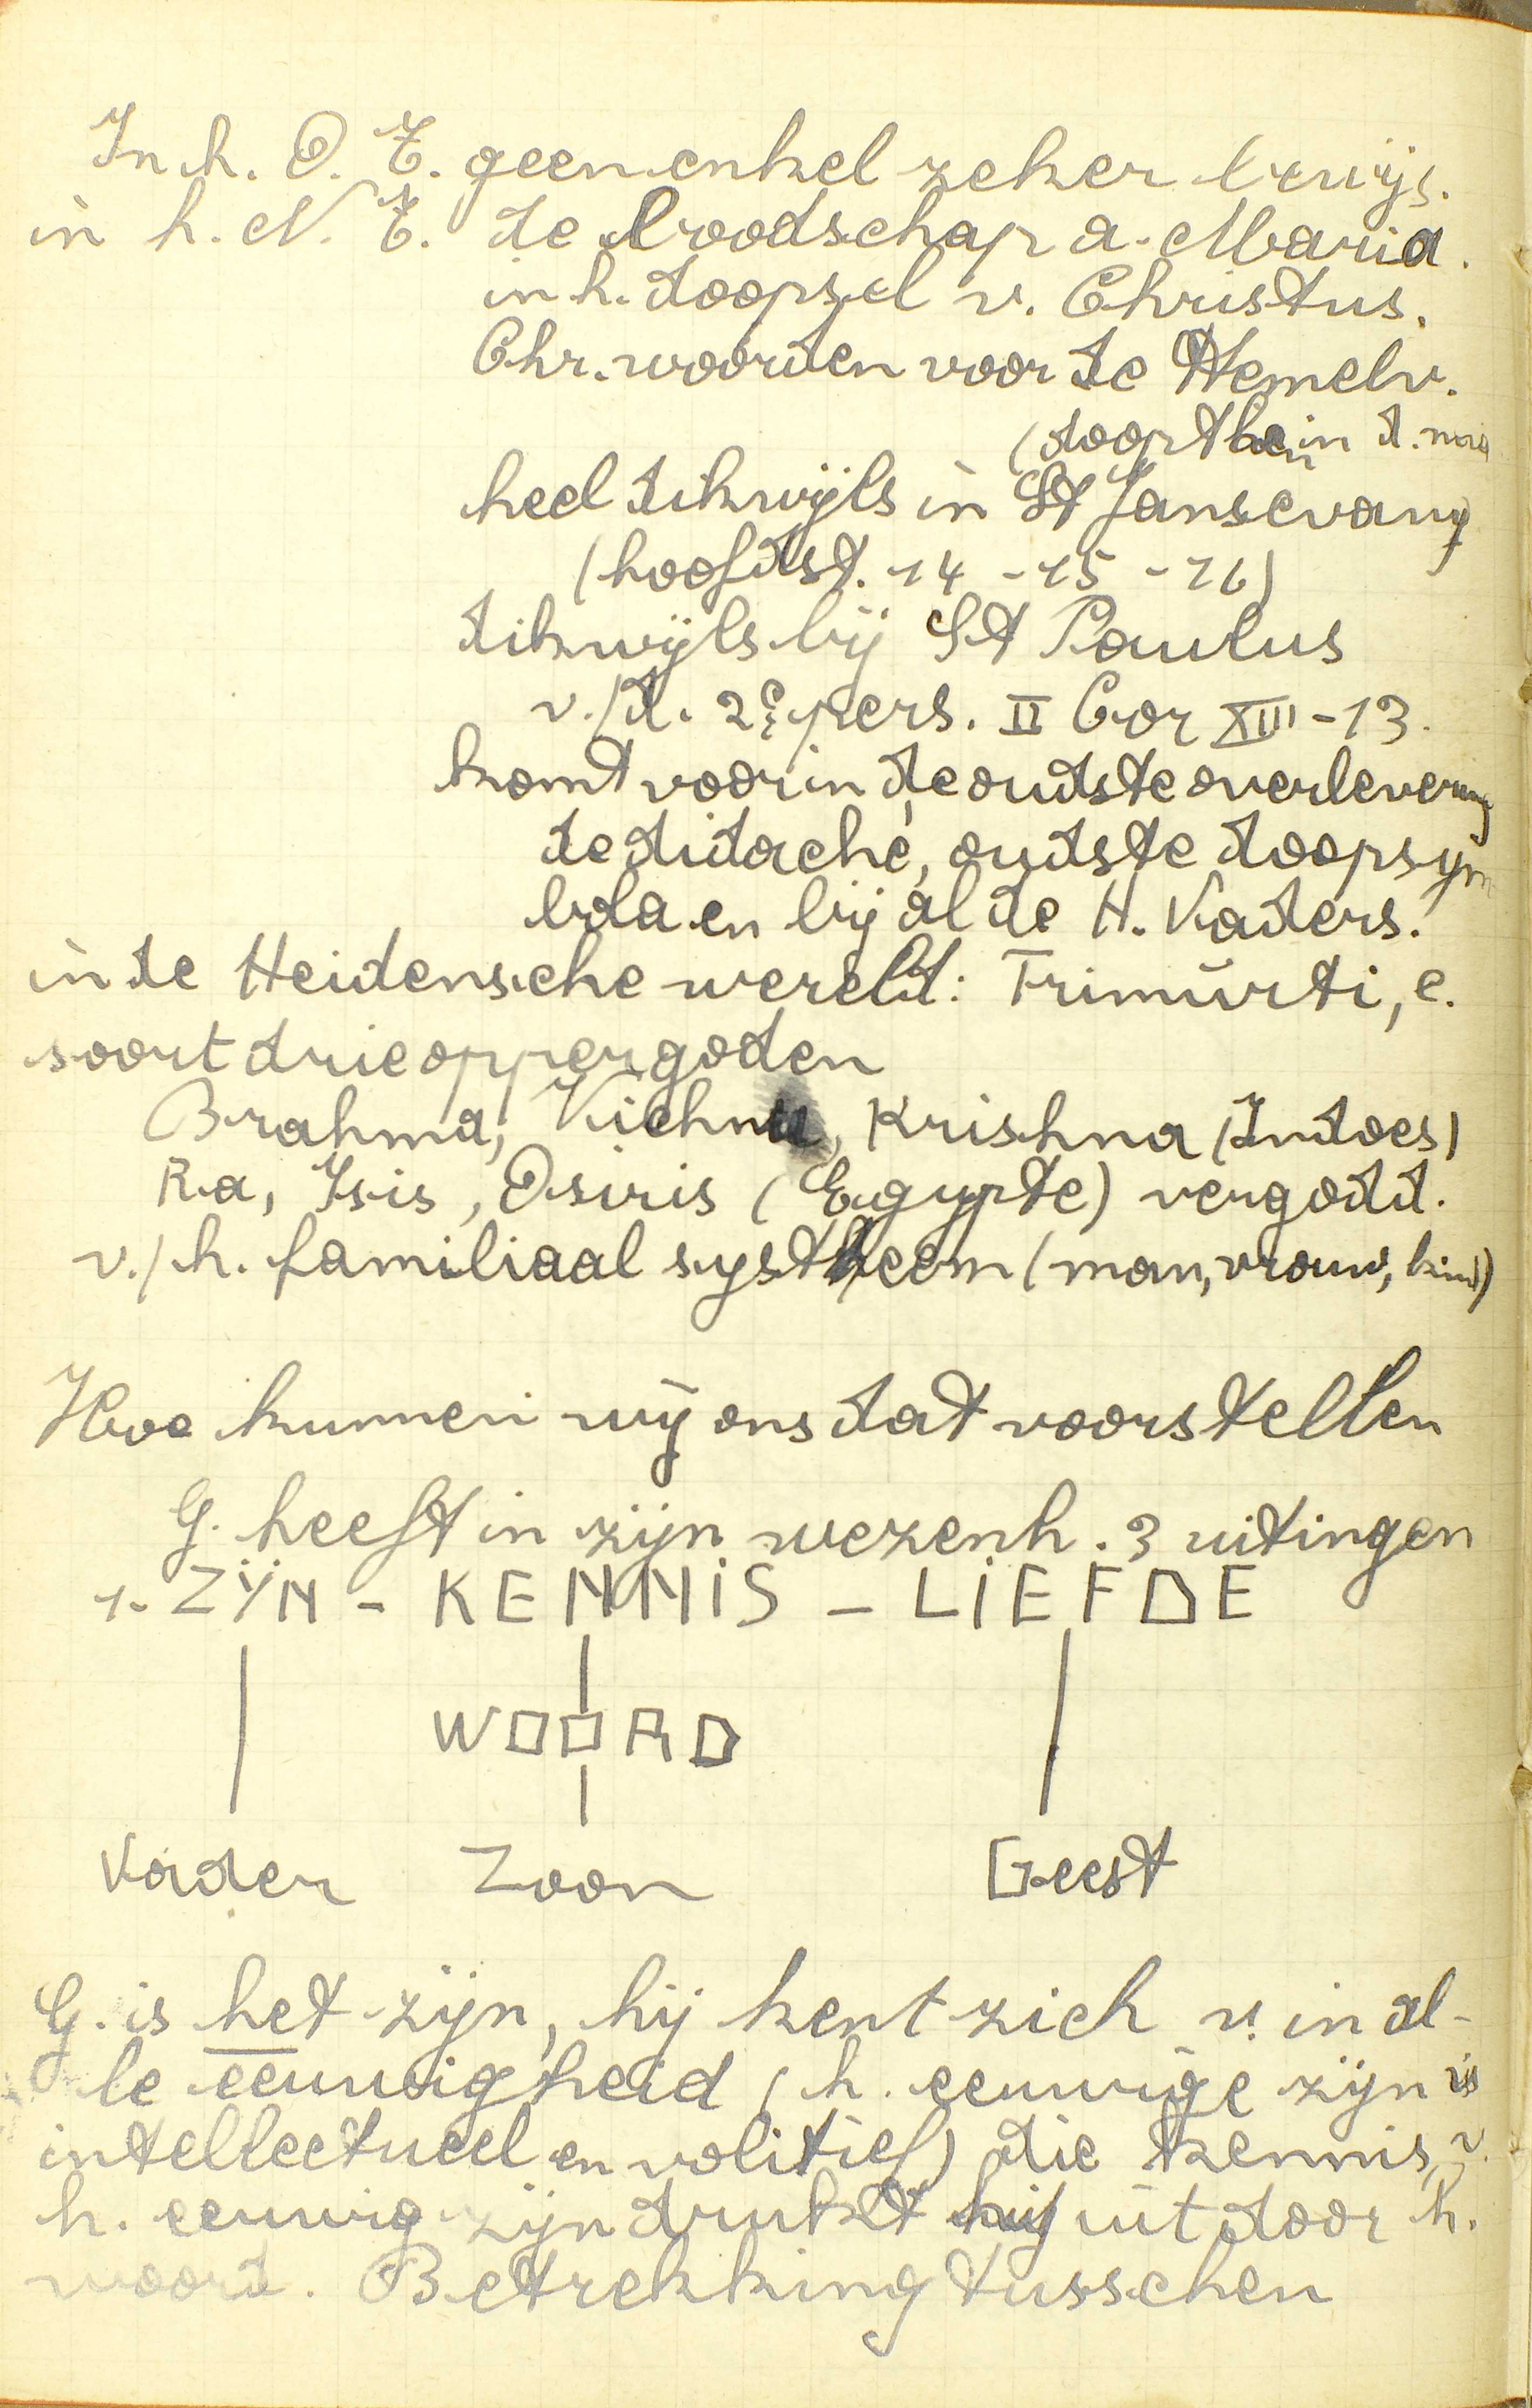 In h. O. T. geen enkel zeker bewijs.
in h. N. T. de boodschap a. Maria.
in h. doopsel v. Christus.
Chr. woorden voor de Hemelv.
(doopt hen in d. naa
heel dikwijls in St Jansevang
(hoofdst. 14 - 15 - 16)
dikwijls bij St Paulus
v./d. 2e pers. II Cor XIII - 13.
komt voor in de oudste overlevering
de didaché, oudste doopsym
bola en bij al de H. Vaders.
in de Heidensche wereld: Trimūrti, e.
soort drie oppergoden
Brahma, Vichnu, Krishna (Indoes)
Ra, Isis, Osiris (Egypte) vergodd.
v./h. familiaal systheem (man, vrouw, kind)
Hoe kunnen wij ons dat voorstellen
G. heeft in zijn wezenh. 3 uitingen
1. ZIJN - KENNIS - LIEFDE
WOORD
Vader Zoon Geest
G. is het zijn, hij kent zich v. in al-
le eeuwigheid (h. eeuwige zijn is
intellectueel en volitief) die kennis v.
h. eeuwig zijn drukt hij uit door h.
woord. Betrekking tusschen